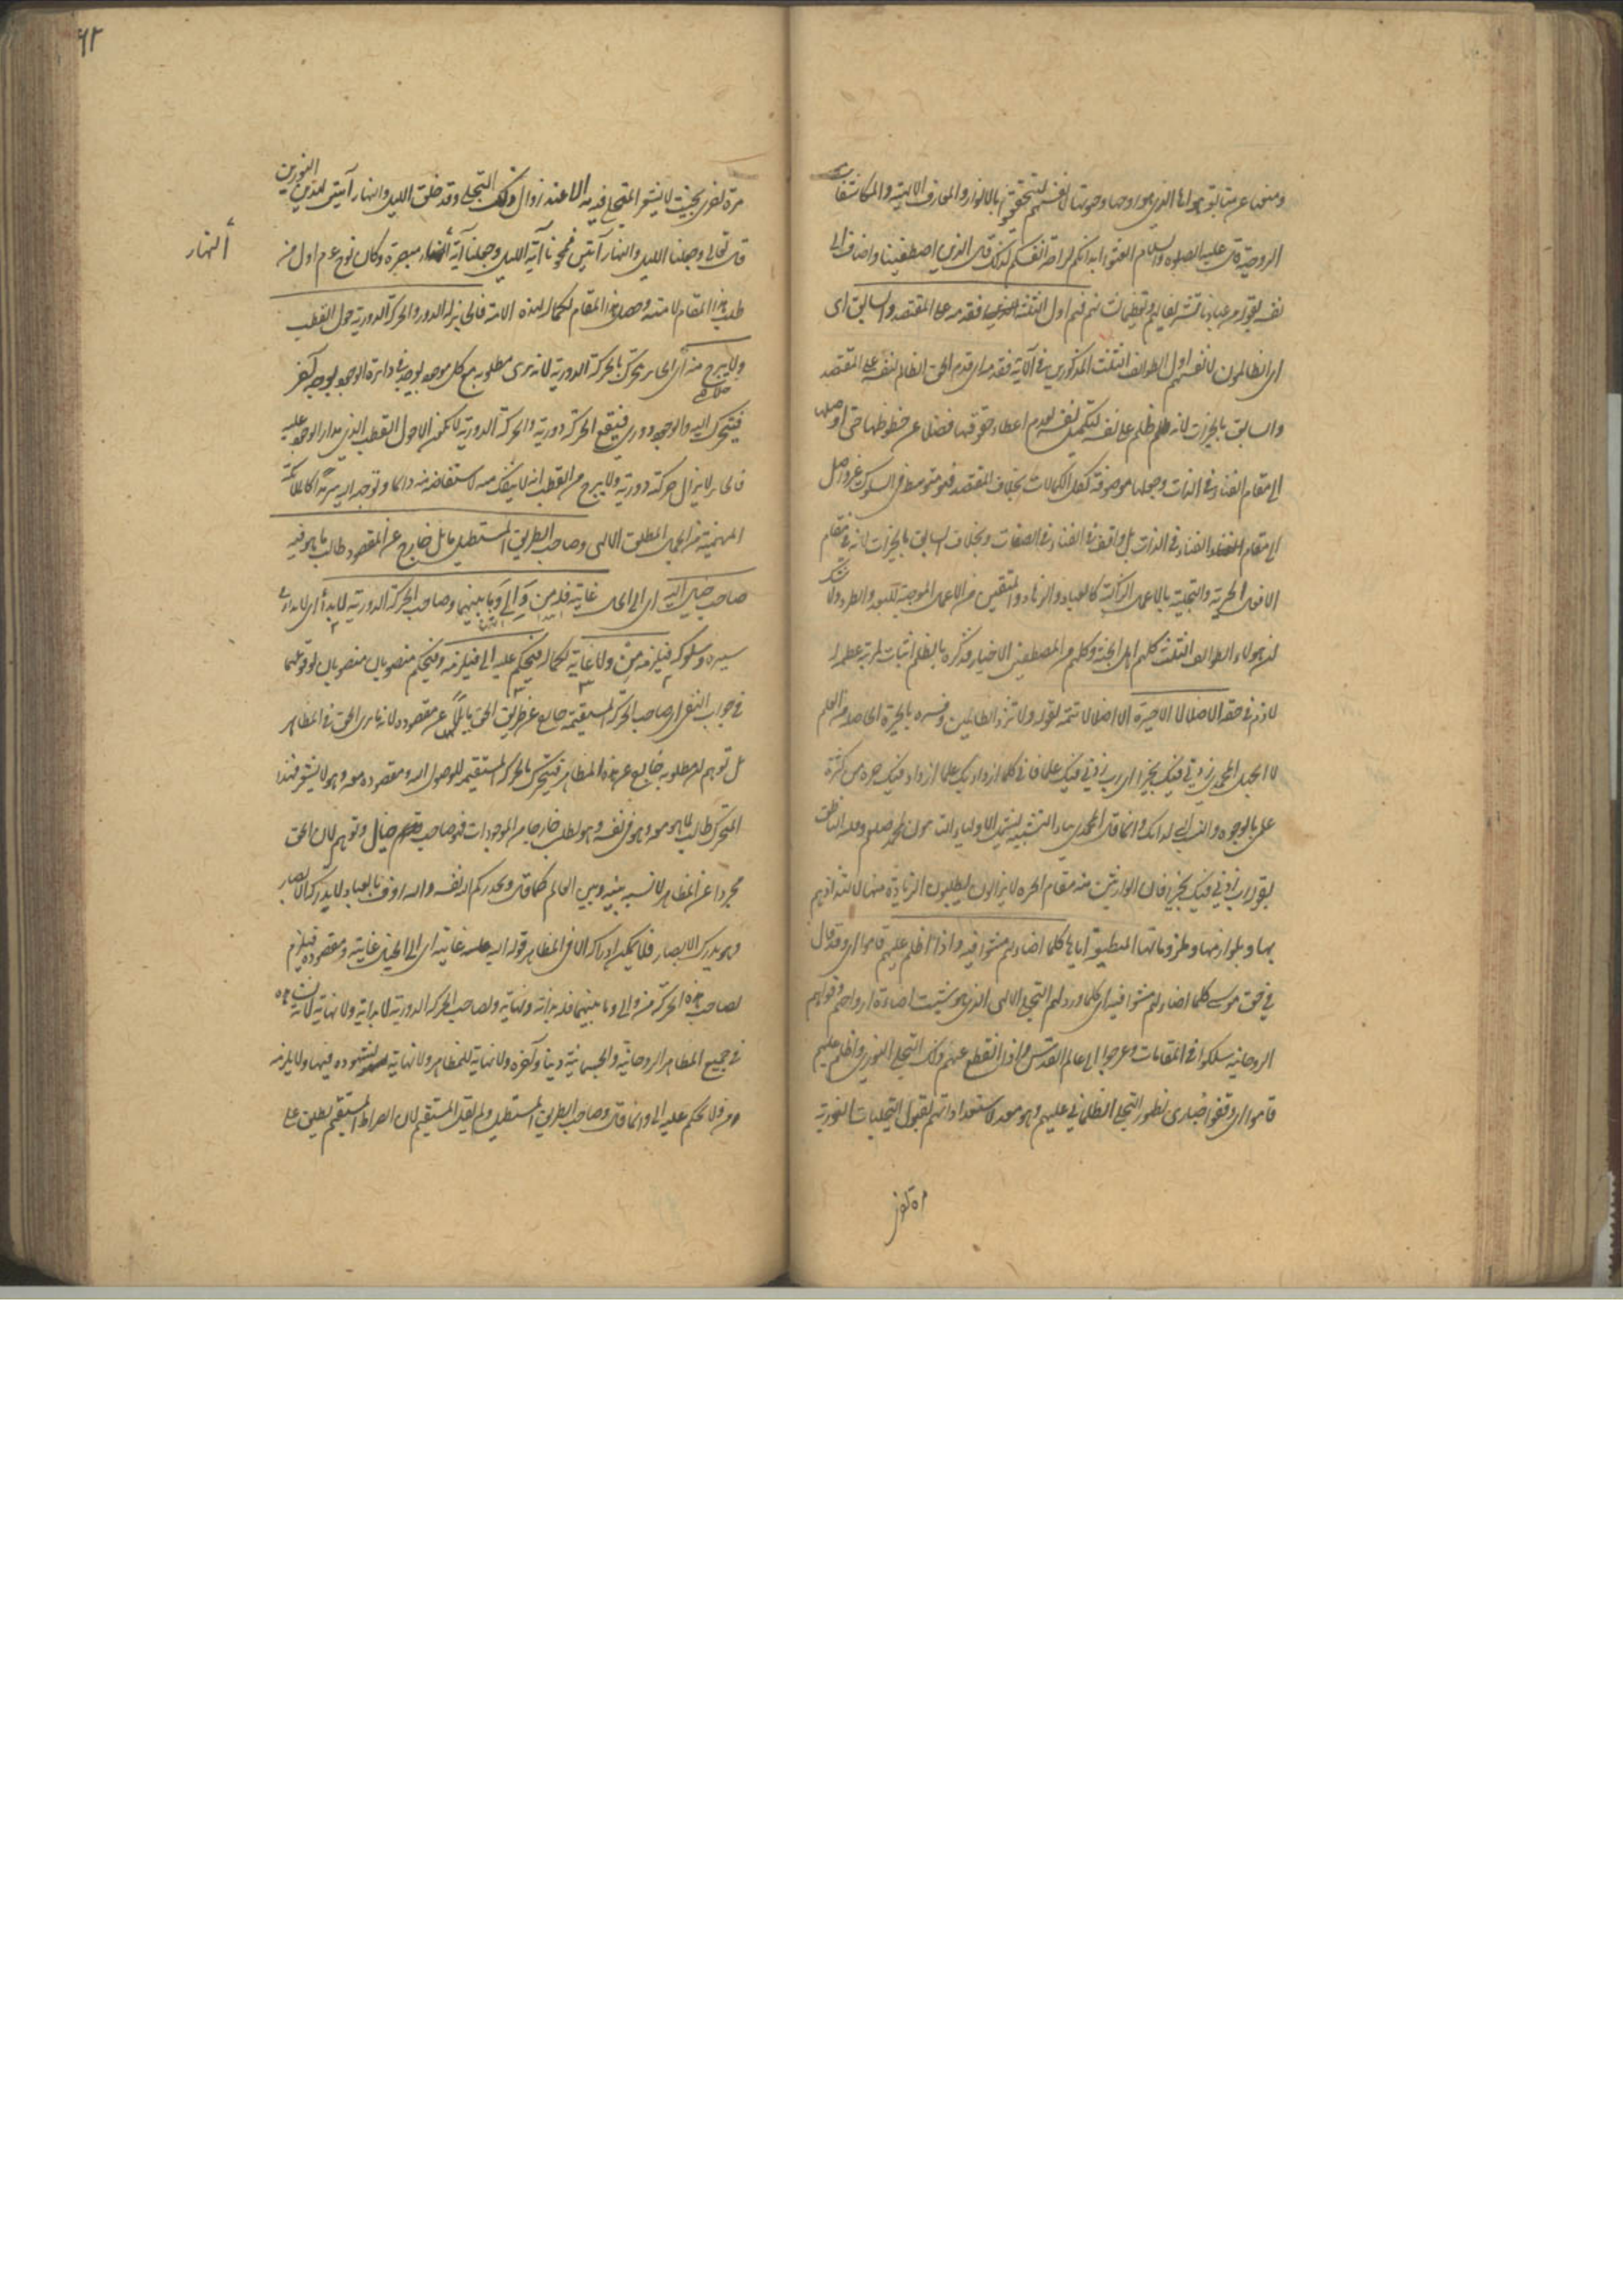 ومنعها عن متابعة هواها الذي هو روحها وحيوتها لانفسهم لتحققهم بالانوار والمعارف الالهية والمكاشفات
الروحية قال عليه الصلوة والسلام اتعبوا ابدانكم لراحة انفسكم لذلك قال الذين اصطفينا واضاف الى
نفسه بقوله من عبادنا تشريفا لهم وتعظيما لشأنهم فهم اول الثلثة فقدمه على المقتصد والسابق اى
اى الظالمون لانفسهم اول الطوائف الثلث المذكورين في الآية فقدمه اى قدم الحق الظالم لنفسه على المقتصد
والسابق بالخيرات لانه ظلم على نفسه لتكميل نفسه بعدم اعطاء حقوقها فضلا عن حظوظها حتى اوصلها
الى مقام الفناء في الذات وجعلها موصوفة بكل الكمالات بخلاف المقتصد فهو متوسط في السلوك غير واصل
الى مقام الفناء في الذات بل واقف في الفناء في الصفات وبخلاف السابق بالخيرات لانه في مقام
الافعال الخيرية والتجلية بالاعمال الزاكية كالعباد والزهاد والمتقين من الاعمال الموجبة للبعد والطرد ولا شك
ان هؤلاء الطوائف الثلث كلهم اهل الجنة وكلهم من المصطفين الاخيار فذكره بالظلم اثبات لمرتبة عظمه له
لا ذم في حقه الا ضلالا الا حيرة الا ضلالا تتمة لقوله ولا تزد الظالمين وفسره بالحيرة الحاصلة من العلم
لا الجهل المحمدي زدني فيك تحيرا اى رب زدني فيك علما فاني كلما ازداد فيك علما ازداد فيك حيرة من كثرة
علمي بالوجوه والنسب التي لذاتك وانما قال المحمدي بياء النسبة ليشمل الاولياء التابعون لمحمد صلعم وقلبه الناطق
بقول رب زدني فيك تحيرا فان الوارثين منه مقام الحيرة لا يزالون يطلبون الزيادة منها لالتذاذهم
بها وبلوازمها وملزوماتها المعطية اياها كلما اضاء لهم مشوا فيه واذا اظلم عليهم قاموا اى وقد قال
في حق موسى كلما اضاء لهم مشوا فيه اى كلما ورد لهم التجلي الالهي الذي هو سبب اضاءة ارواحهم وقواهم
الروحانية سلكوا في المقامات وعرجوا الى عالم القدس واذا انقطع عنهم ذلك التجلي النوري واظلم عليهم
قاموا اى وقفوا حيارى لظهور التجلي الظلماني عليهم وهو معد لاستعداداتهم لقبول التجليات النورية
مرة اخرى بحيث لا يشعر المتجلى فيه به الا عند زوال ذلك التجلي وقد خلق الليل والنهار آيتي لهذين النورين
قال تعالى وجعلنا الليل والنهار آيتين فمحونا آية الليل وجعلنا آية النهار مبصرة وكان نوح عم اول من
النهار
طلب هذا المقام لامته وحصل هذا المقام لكماله لهذه الامة فالحاير له الدور والحركة الدورية حول القطب
ولا يبرح منه اى الحاير يتحرك بالحركة الدورية لانه يرى مطلوبه مع كل موجود يوجد في دائرة الوجود بوجه آخر
فيتحرك اليه والوجود دوري فيقع الحركة دورية والحركة الدورية لا تكون الا حول القطب الذي مدار الوجود عليه
فالحاير لا يزال حركته دورية ولا يبرح من القطب اى لا ينفك منه لاستفاضته منه دائما وتوجه اليه سرمدا كالملائكة
المهيمة في الجمال المطلق الالهي وصاحب الطريق المستطيل مائل خارج عن المقصود طالب ما هو فيه
صاحب خيال اليه اى الى الخيال غايته فله من وآلى وما بينهما وصاحب الحركة الدورية لا بدأ اى لا بداية
سيره وسلوكه فيلزمه من ولا غاية لكماله فيحكم عليه الى فيلزمه وفيحكم منصوبان منصوبان لوقوعهما
في جواب النفي اى صاحب الحركة المستقيمة ضايع عن طريق الحق مايلا عن مقصوده لانه ما رأى الحق في المظاهر
بل توهم ان مطلوبه خارج عن هذه المظاهر فيتحرك بالحركة المستقيمة للوصول اليه ومقصوده معه وهو لا يشعر فهذا
المتحرك طالب لما هو معه وهو في نفسه وهو يطلبه خارجا من الموجودات فهو صاحب خيال وتوهم لان الحق
مجردا عن المظاهر لا نسبة بينه وبين العالم كما قال ويحذركم الله نفسه والله رؤف بالعباد لا يدركه الابصار
وهو يدرك الابصار فلا يمكن ادراكه الا في المظاهر قوله اليه غايته اى الى الخيال غايته ومقصوده فيلزم
لصاحب هذه الحركة من والى وما بينهما فله بداية ونهاية ولصاحب الحركة الدورية لا بداية ولا نهاية لانه يشاهده
في جميع المظاهر الروحانية والجسمانية دنيا وآخرة ولا نهاية للمظاهر ولا نهاية لشهوده فيها ولا يلزمه
من ولا يحكم عليه الى وانما قال وصاحب الطريق المستطيل ولم يقل المستقيم لان الصراط المستقيم يطلق على